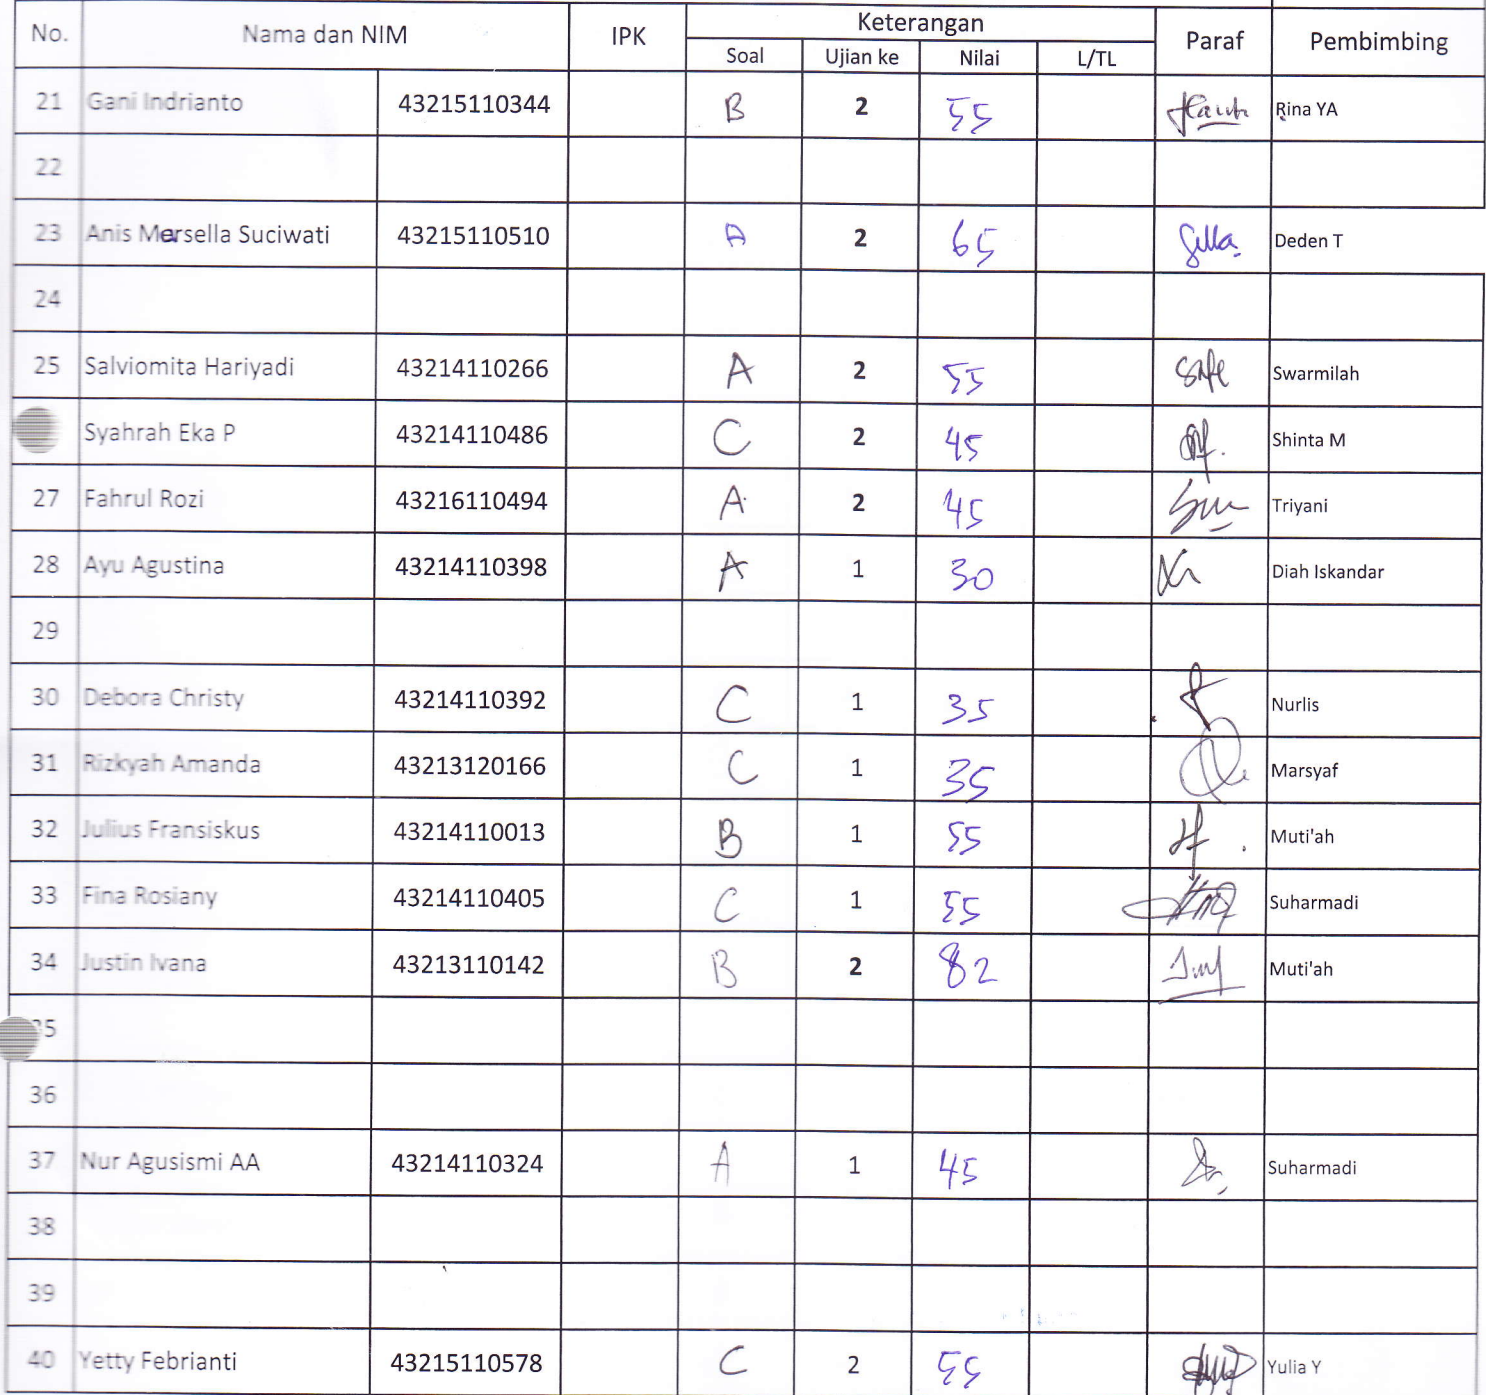 No. Nama dan NIM IPK Keterangan Paraf Pembimbing
Soal Ujian ke Nilai L/TL
21 Gani Indrianto 43215110344 B 2 55 Rina YA
22
23 Anis Marsella Suciwati 43215110510 A 2 65 Deden T
24
25 Salviomita Hariyadi 43214110266 A 2 55 Swarmilah
Syahrah Eka P 43214110486 C 2 45 Shinta M
27 Fahrul Rozi 43216110494 A 2 45 Triyani
28 Ayu Agustina 43214110398 A 1 30 Diah Iskandar
29
30 Debora Christy 43214110392 C 1 35 Nurlis
31 Rizkyah Amanda 43213120166 C 1 35 Marsyaf
32 Julius Fransiskus 43214110013 B 1 55 Muti'ah
33 Fina Rosiany 43214110405 C 1 55 Suharmadi
34 Justin Ivana 43213110142 B 2 82 Muti'ah
35
36
37 Nur Agusismi AA 43214110324 A 1 45 Suharmadi
38
39
40 Yetty Febrianti 43215110578 C 2 55 Yulia Y